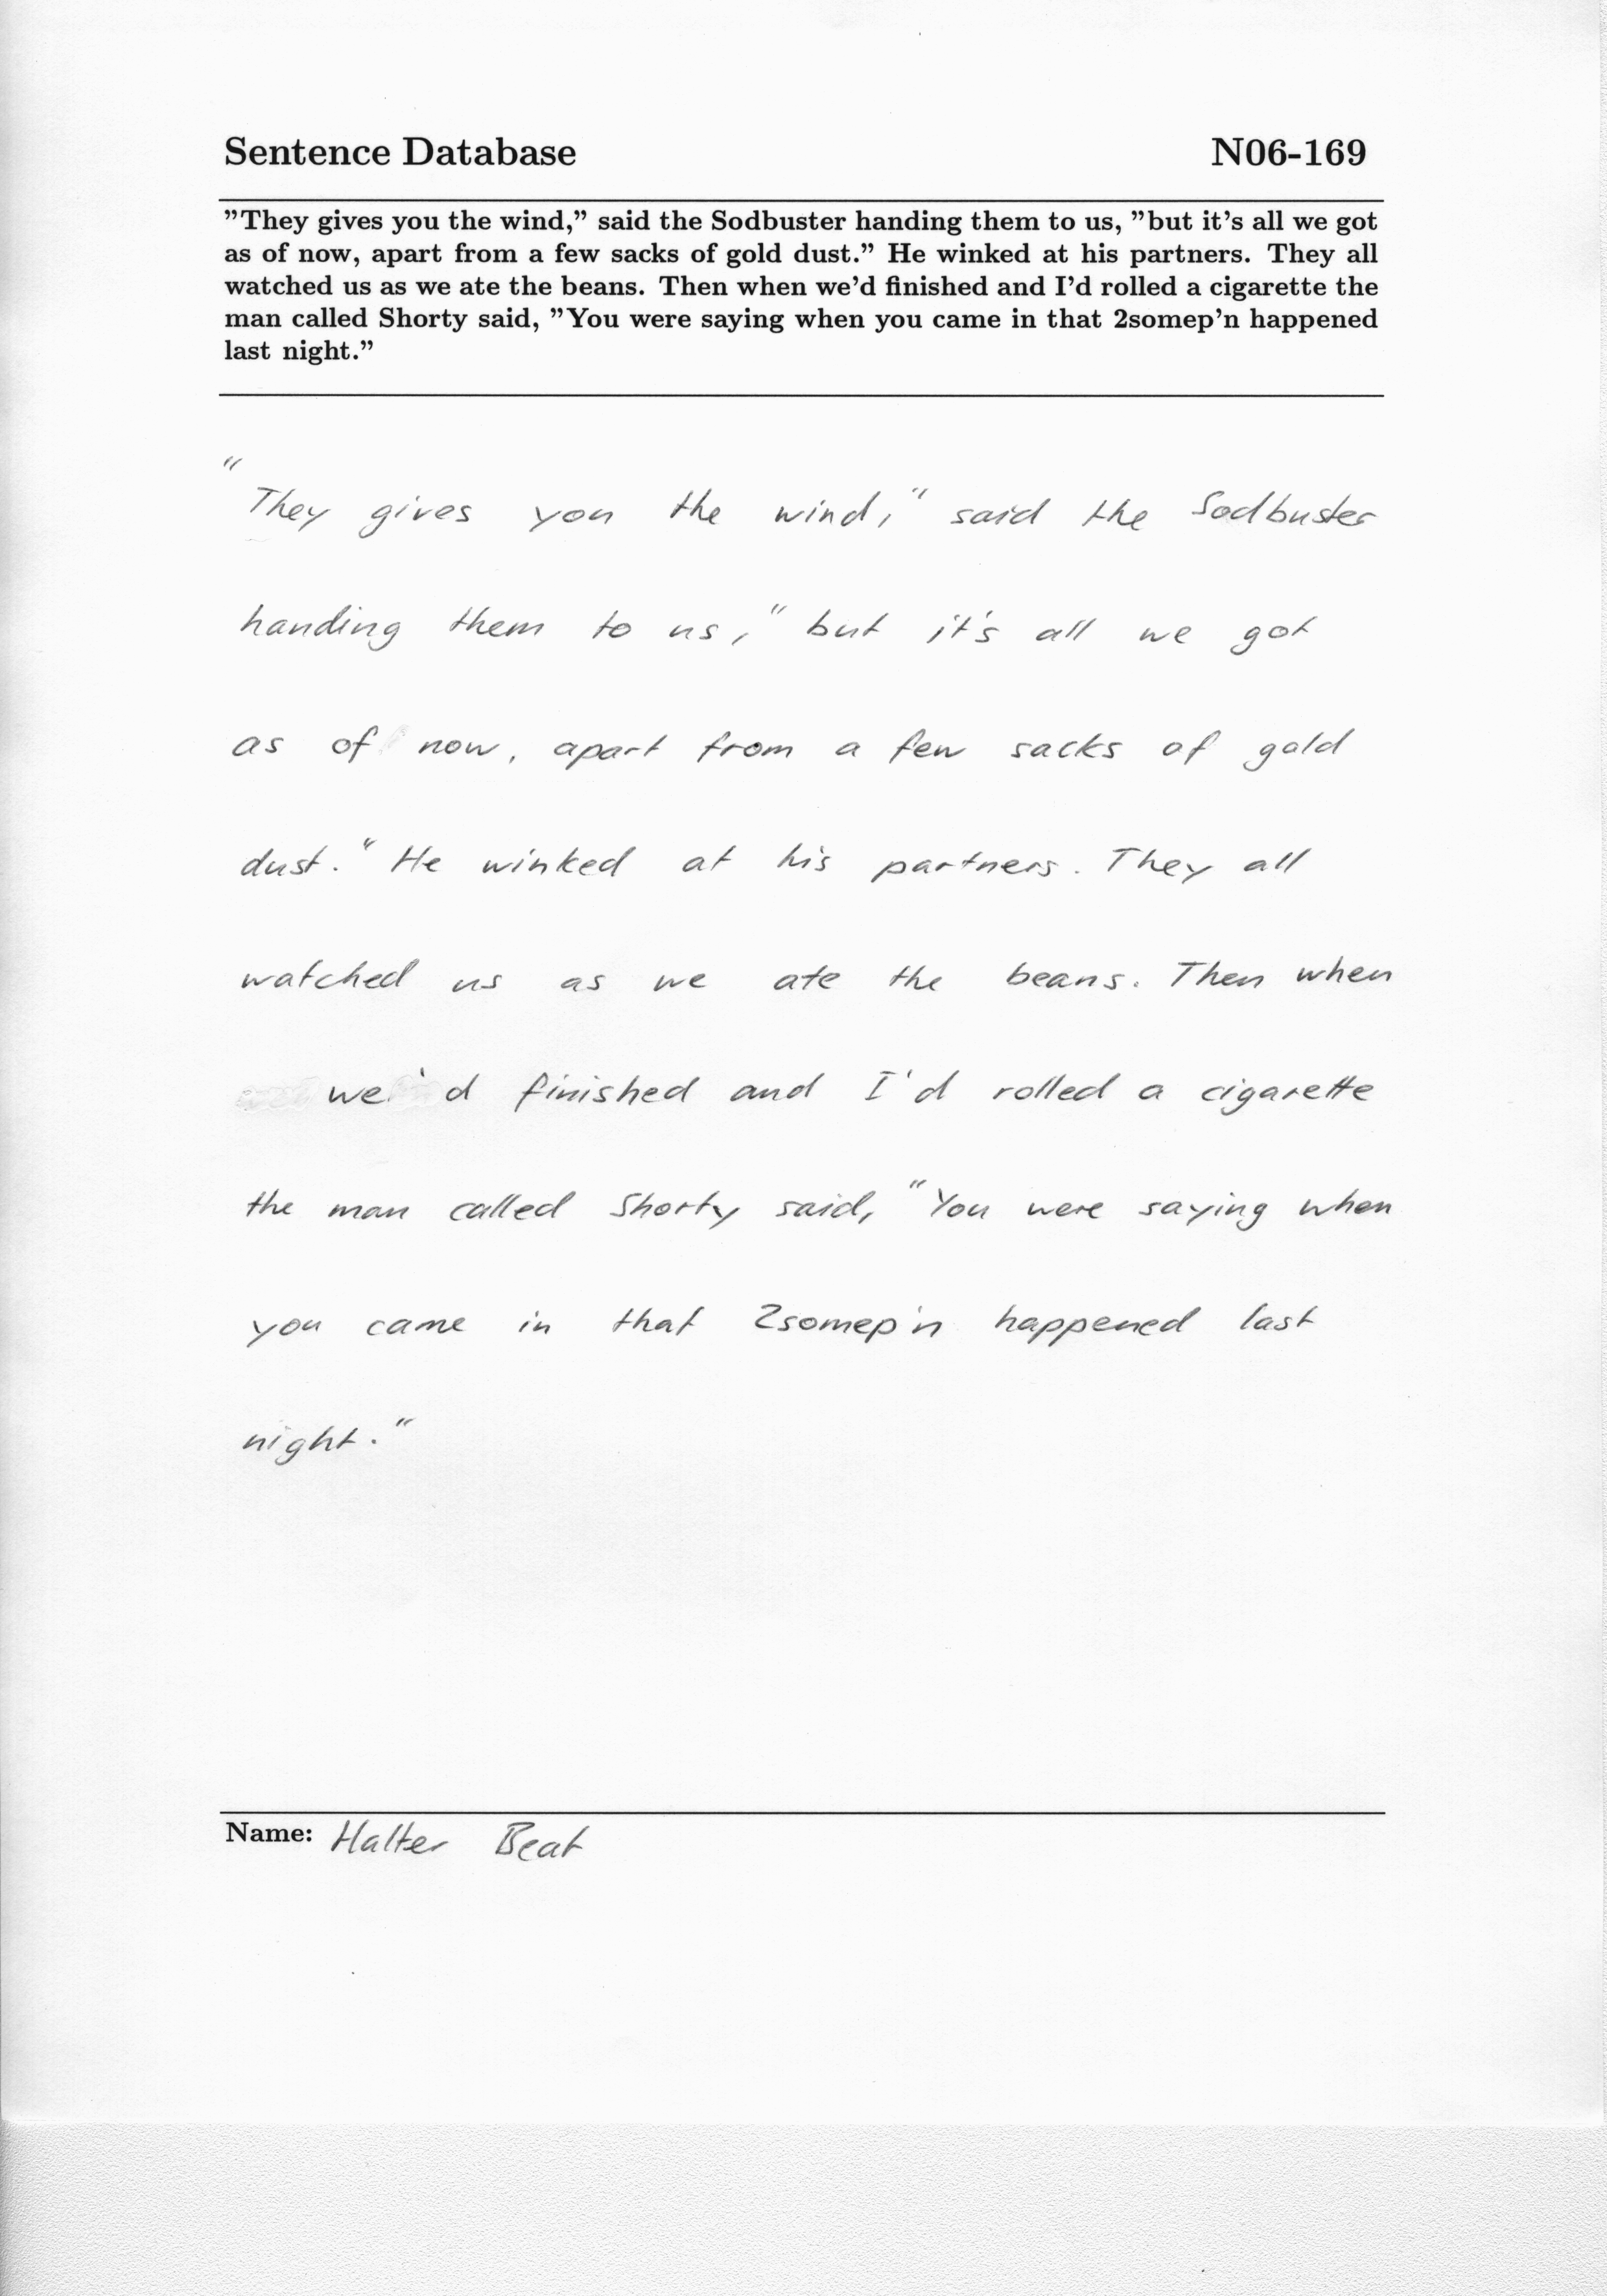 Sentence Database N06-169
”They gives you the wind,” said the Sodbuster handing them to us, ”but it’s all we got
as of now, apart from a few sacks of gold dust.” He winked at his partners. They all
watched us as we ate the beans. Then when we’d finished and I’d rolled a cigarette the
man called Shorty said, ”You were saying when you came in that 2somep’n happened
last night.”
"They gives you the wind," said the Sodbuster
handing them to us, "but it's all we got
as of now, apart from a few sacks of gold
dust." He winked at his partners. They all
watched us as we ate the beans. Then when
we'd finished and I'd rolled a cigarette
the man called Shorty said, "You were saying when
you came in that 2somep'n happened last
night."
Name: Halter Beat